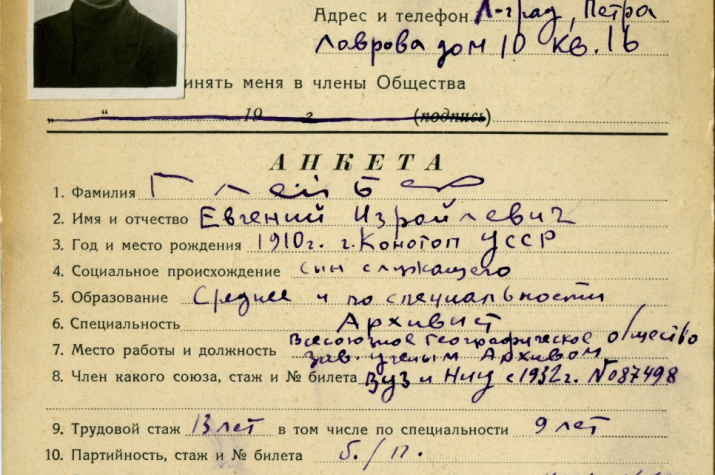 Адрес и телефон Л-град, Петра
Лаврова дом 10 кв. 16
инять меня в члены Общества
„ “ 19 г (подпись)
АНКЕТА
1. Фамилия Глейбер
2. Имя и отчество Евгений Израйлевич
3. Год и место рождения 1910г. г. Конотоп УССР
4. Социальное происхождение сын служащего
5. Образование Среднее и по специальности
6. Специальность Архивист
Всесоюзное Географическое общество
7. Место работы и должность зав. ученым Архивом
8. Член какого союза, стаж и № билета ВУЗ и НИУ с 1932г. №087498
9. Трудовой стаж 13 лет в том числе по специальности 9 лет
10. Партийность, стаж и № билета б./п.